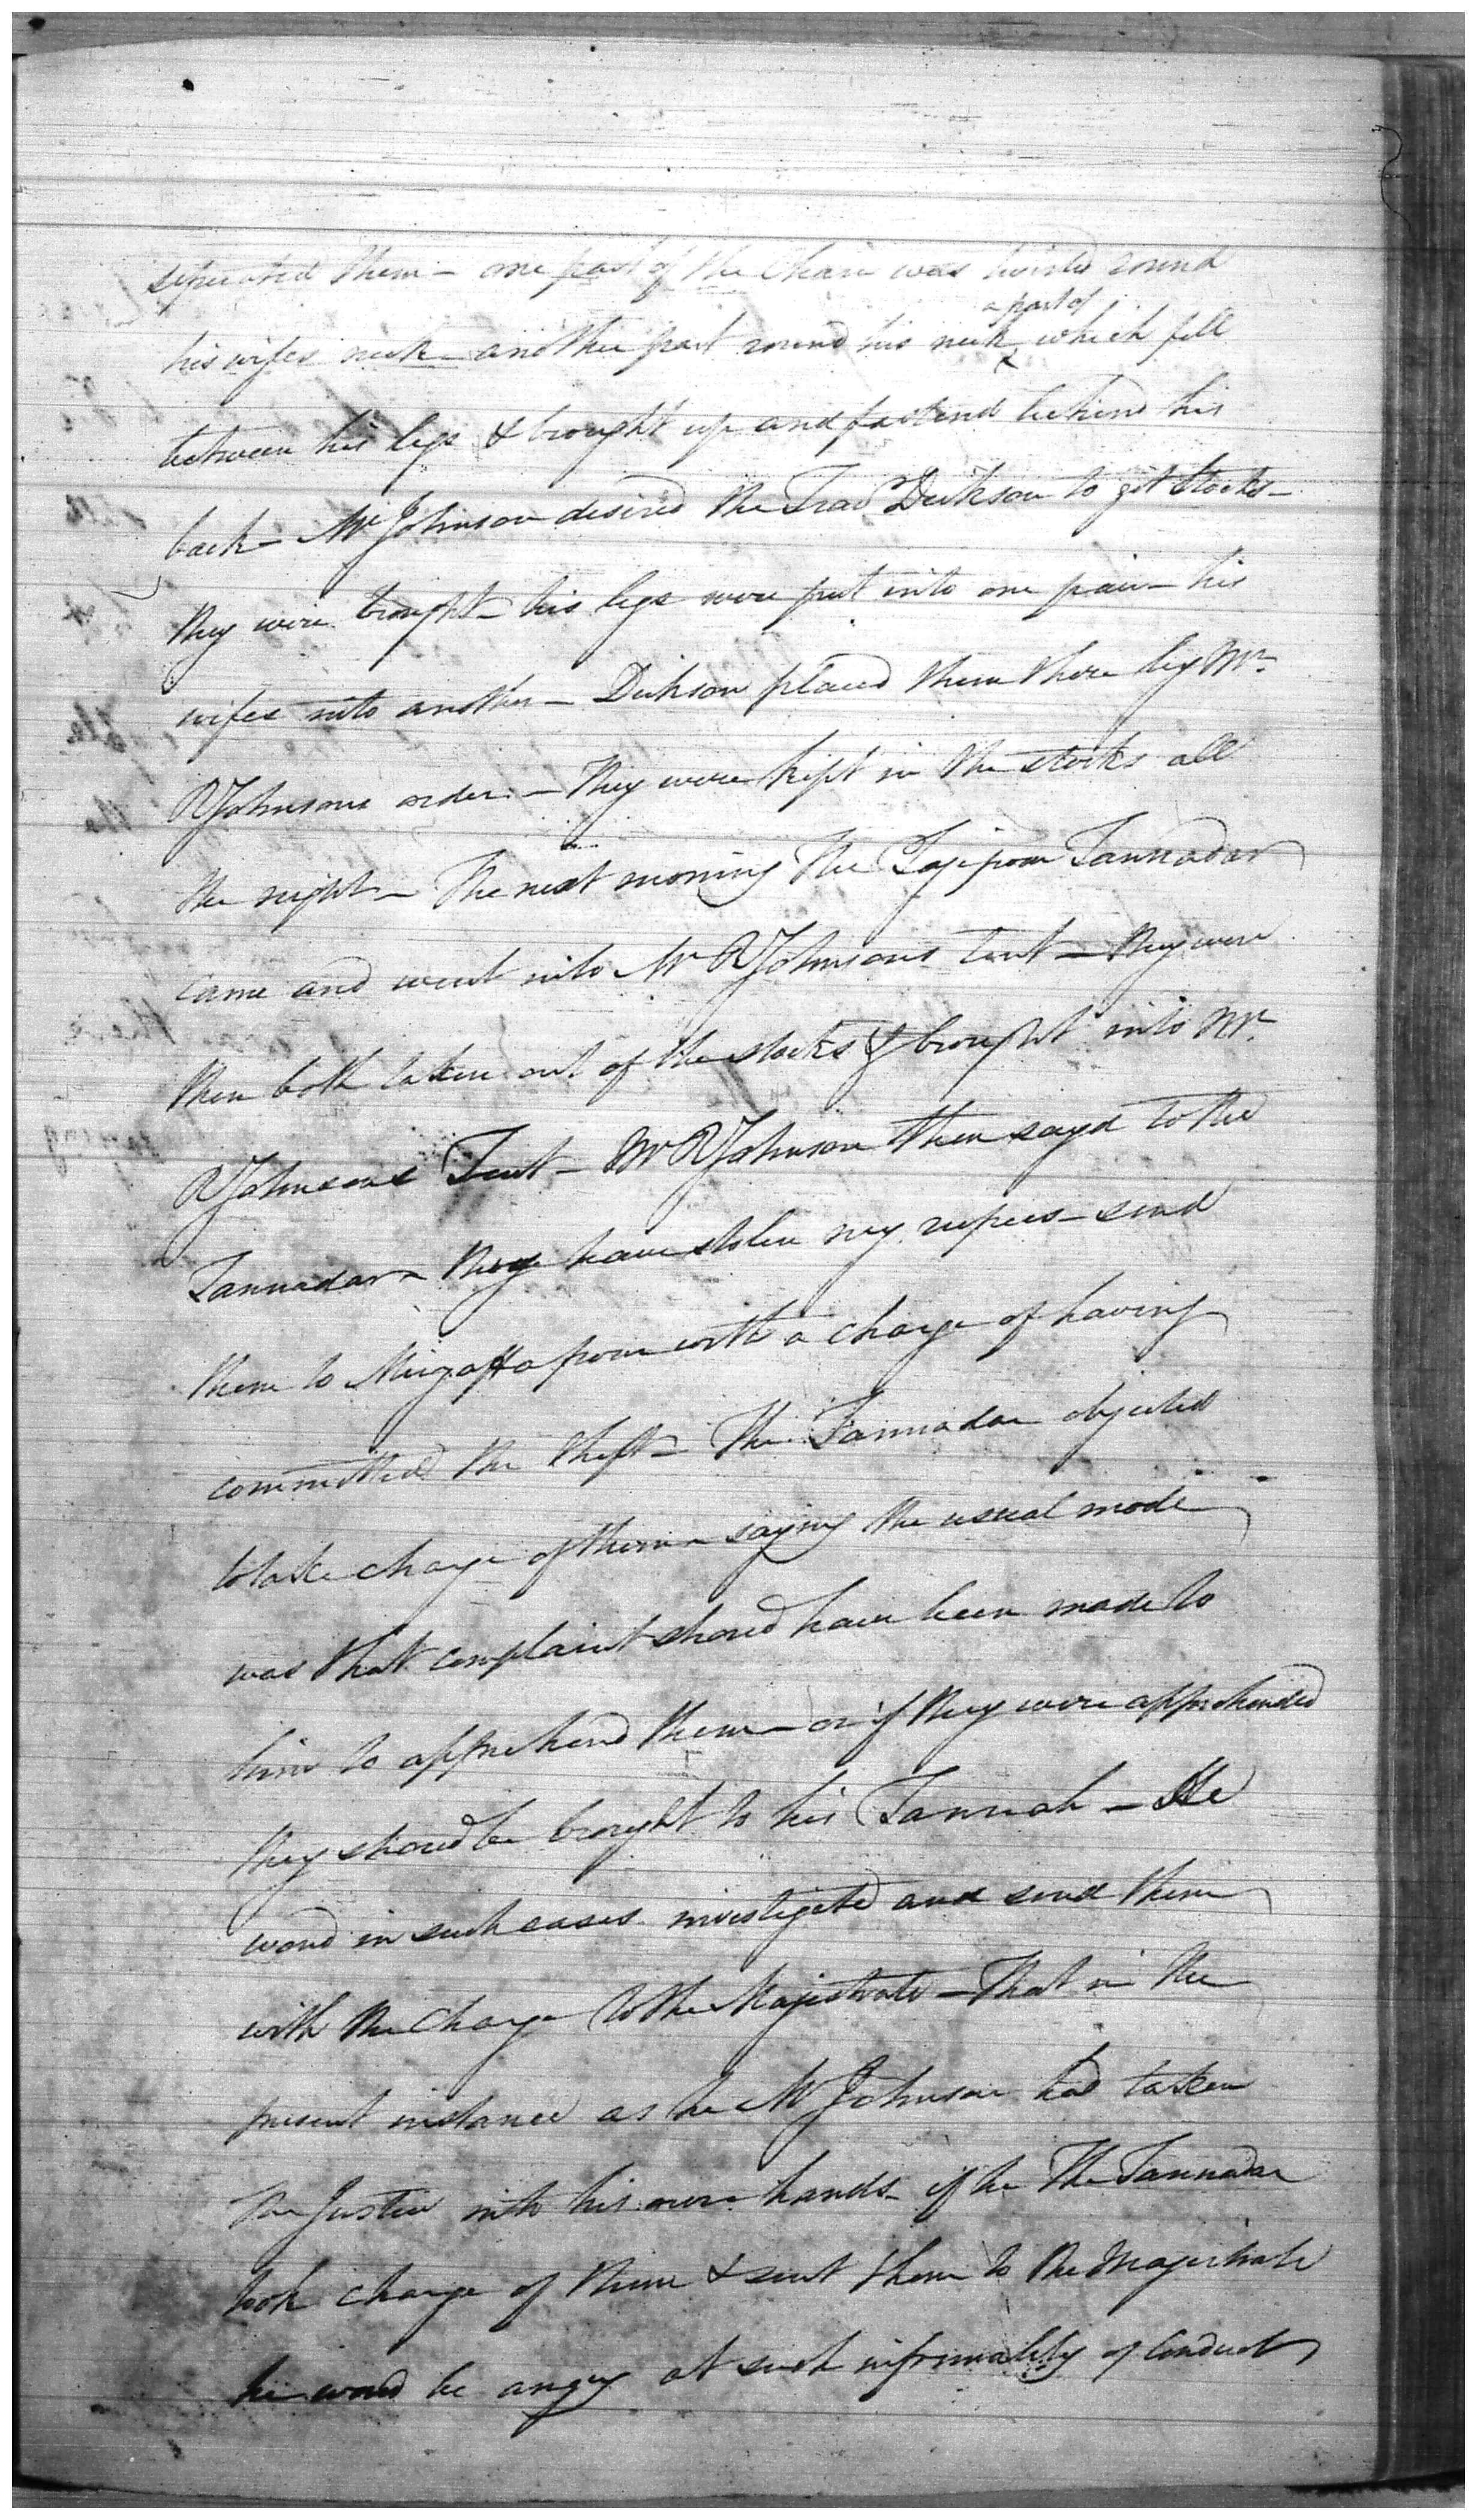 seperated them - one part of the Chain was twisted round
his wifes neck - another part round his neck a part of which fell
between his legs & brought up and fastend behind his
back - Mr Johnson desired the Dickson to get Stocks -
they were brought - his legs were put into one pair - his
wifes into another - Dickson placed them there by Mr.
R Johnsons order. - They were kept in the stocks all
the night - The next morning the Tajepoor Tannadar
came and went into Mr R Johnsons Tent - they were
then both taken out of the stocks & brought into Mr.
R Johnsons Tent - Mr R Johnson then sayd to the
Tannadar - they have stolen my rupees - send
them to with a charge of having
committed the theft - The Tannadar objected
to take charge of them - saying the usual mode
was that complaint shoud have been made to
him to apprehend them - or if they were apprehended
they shoud be brought to his Tannah - He
woud in such cases investigate and send them
with the charge to the Majestrate - That in the
present instance as he Mr Johnson had taken
the Justice into his own hands - if he The Tannadar
took charge of them & sent them to the Majestrate
he woud be angry at such informality of Conduct